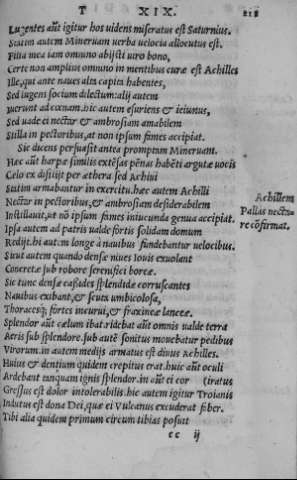 T XIX. 218
Lugentes aũt igitur hos uidens miseratus est Saturnius.
Statim autem Mineruam uerba uelocia allocutus est.
Filia mea iam omnino abijsti uiro bono,
Certe non amplius omnino in mentibus curæ est Achilles
Ille, qui ante naues alta capita habentes,
Sed lugens socium dilectum: alij autem
Iuerunt ad cœnam. hic autem esuriens & ieiunus,
Sed uade ei nectar & ambrosiam amabilem
Stilla in pectoribus, ut non ipsum fames accipiat.
Sic dicens persuasit antea promptam Mineruam.
Hæc aũt harpæ similis extẽsas pẽnas habẽti argutæ uocis
Celo ex disiijt per æthera sed Achiui
Statim armabantur in exercitu. hæc autem Achilli
Nectar in pectoribus, & ambrosiam desiderabilem
Instillauit, ut nõ ipsum fames iniucunda genua accipiat.
Achillem
Pallas nectare
recõfirmat.
Ipsa autem ad patris ualde fortis solidam domum
Redijt. hi autem longe à nauibus fundebantur uelocibus.
Sicut autem quando densæ niues Iouis exuolant
Concretæ sub robore serenifici boreæ.
Sic tunc densæ cassides splendide corruscantes
Nauibus exibant, & scuta umbicolosa,
Thoracesq; fortes incurui, & fraxineæ lanceæ.
Splendor aũt cælum ibat. ridebat aũt omnis ualde terra
Aeris sub splendore. sub autẽ sonitus mouebatur pedibus
Virorum. in autem medijs armatus est diuus Achilles.
Huius & dentium quidem crepitus erat. huic aũt oculi
Ardebant tanquam ignis splendor. in aũt ei cor (iratus
Gressus est dolor intolerabilis. hic autem igitur Troianis
Indutus est dona Dei, quæ ei Vulcanus excuderat faber.
Tibialia quidem primum circum tibias posuit
cc ij